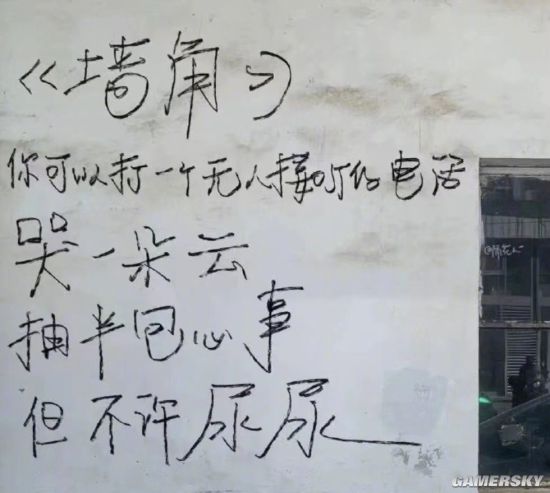 《墙角》
你可以打一个无人接听的电话
哭一朵云
抽半包心事
但不许尿尿
GAMERSKY